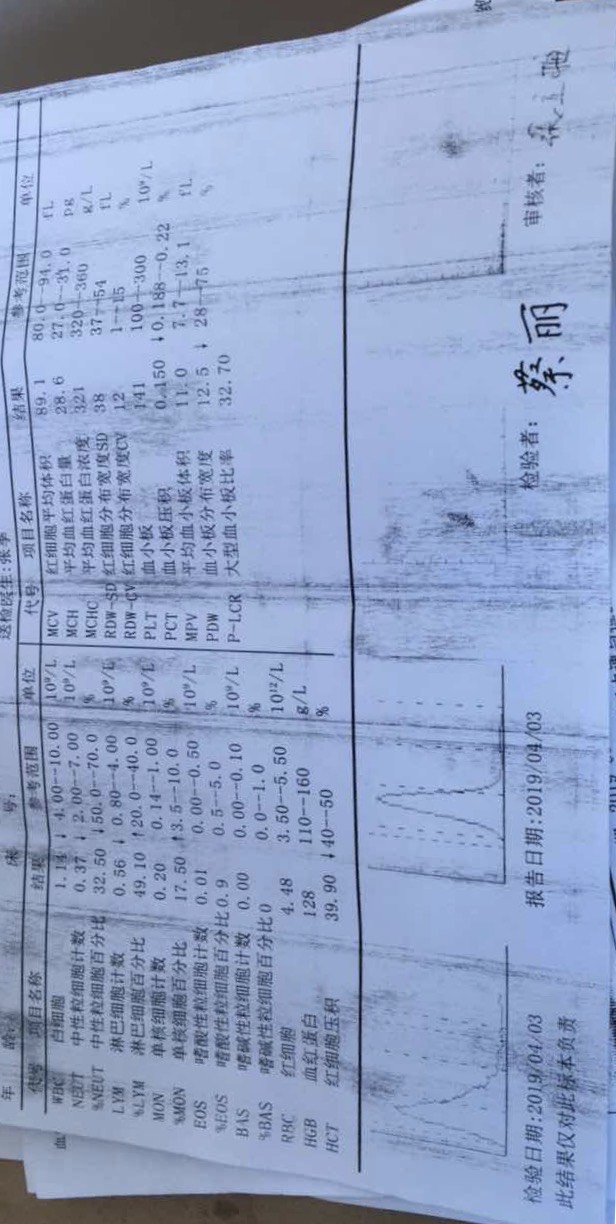 年 龄: 床 号: 送检医生:张季
代号 项目名称 结果 参考范围 单位 代号 项目名称 结果 参考范围 单位
WBC 白细胞 1.14 ↓ 4.00--10.00 10⁹/L MCV 红细胞平均体积 89.1 80.0--94.0 fL
NEUT 中性粒细胞计数 0.37 ↓ 2.00--7.00 10⁹/L MCH 平均血红蛋白量 28.6 27.0--31.0 pg
%NEUT 中性粒细胞百分比 32.50 ↓50.0--70.0 % MCHC 平均血红蛋白浓度 321 320--360 g/L
LYM 淋巴细胞计数 0.56 ↓ 0.80--4.00 10⁹/L RDW-SD 红细胞分布宽度SD 38 37--54 fL
%LYM 淋巴细胞百分比 49.10 ↑20.0--40.0 % RDW-CV 红细胞分布宽度CV 12 1--15 %
MON 单核细胞计数 0.20 0.14--1.00 10⁹/L PLT 血小板 141 100--300 10⁹/L
%MON 单核细胞百分比 17.50 ↑3.5--10.0 % PCT 血小板压积 0.150 ↓0.188--0.22 %
EOS 嗜酸性粒细胞计数 0.01 0.00--0.50 10⁹/L MPV 平均血小板体积 11.0 7.7--13.1 fL
%EOS 嗜酸性粒细胞百分比 0.9 0.5--5.0 % PDW 血小板分布宽度 12.5 ↓ 28--75 %
BAS 嗜碱性粒细胞计数 0.00 0.00--0.10 10⁹/L P-LCR 大型血小板比率 32.70
%BAS 嗜碱性粒细胞百分比 0 0.0--1.0 %
RBC 红细胞 4.48 3.50--5.50 10¹²/L
HGB 血红蛋白 128 110--160 g/L
HCT 红细胞压积 39.90 ↓40--50 %
检验日期:2019/04/03 报告日期:2019/04/03 检验者: 蔡丽 审核者:
此结果仅对此标本负责